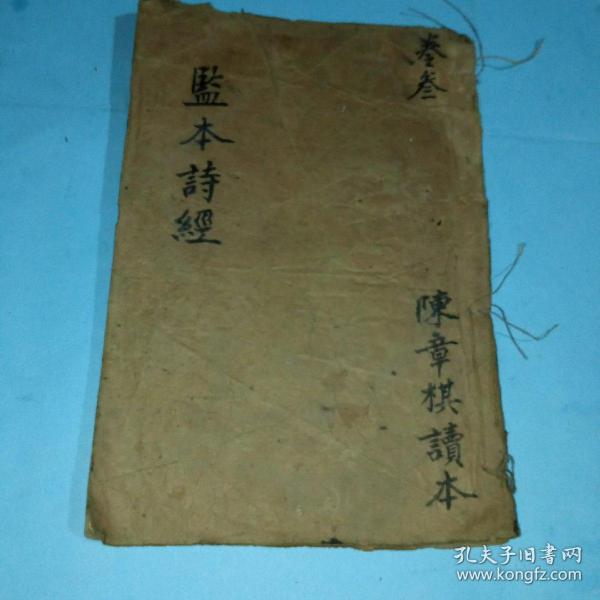 卷叁
監本詩經
陳章棋讀本
孔夫子旧书网
www.kongfz.com